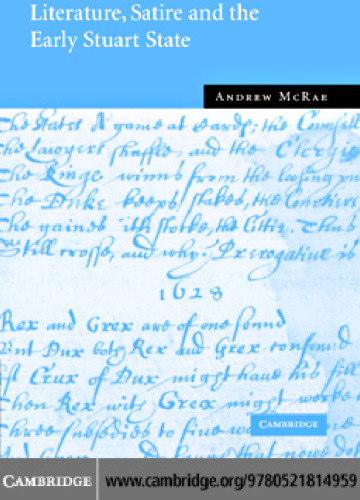 Literature, Satire and the
Early Stuart State
ANDREW MCRAE
The States A game at Cards, the Counsell
The Lawyers shuffle, and the Clergie
The Kinge winns from the loosing
The Duke keeps stakes, the Courtiers
The gaines ith stocke, the Cittie. Thus
Still crosse, and why? Prerogative is
1628
Rex and Grex are of one sound
But Dux doth Rex and Grex confound
If Crux of Dux might have his fill
Then Rex with Grex might worke
Three subsedies to five
that nowe
CAMBRIDGE
CAMBRIDGE
www.cambridge.org/9780521814959